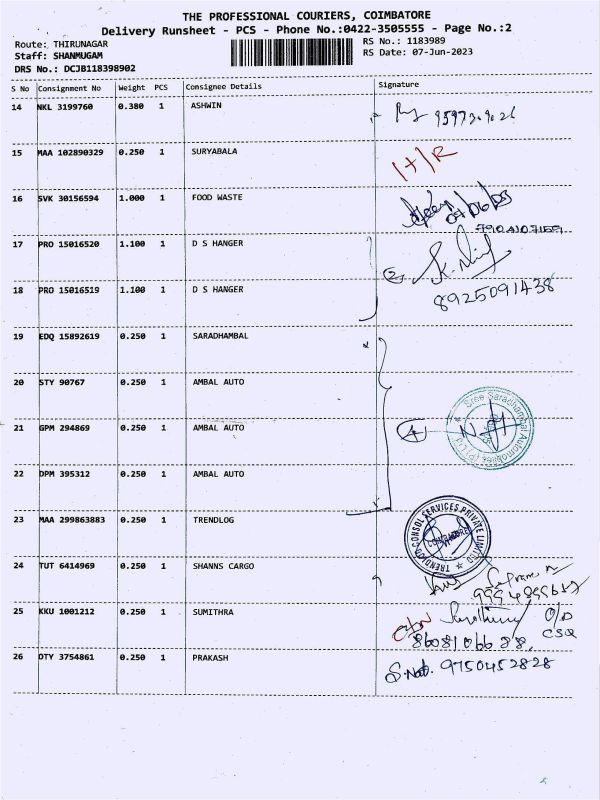 THE PROFESSIONAL COURIERS, COIMBATORE
Delivery Runsheet - PCS - Phone No.:0422-3505555 - Page No.:2
Route: THIRUNAGAR
Staff: SHANMUGAM
DRS No.: DCJB118398902
RS No.: 1183989
RS Date: 07-Jun-2023
S No Consignment No Weight PCS Consignee Details Signature
14 NKL 3199760 0.380 1 ASHWIN
15 MAA 102890329 0.250 1 SURYABALA
16 SVK 30156594 1.000 1 FOOD WASTE
17 PRO 15016520 1.100 1 D S HANGER
2
18 PRO 15016519 1.100 1 D S HANGER 8925091438
19 EDQ 15892619 0.250 1 SARADHAMBAL
20 STY 90767 0.250 1 AMBAL AUTO
21 GPM 294869 0.250 1 AMBAL AUTO 4
Sree Saradhambal Automobiles
22 DPM 395312 0.250 1 AMBAL AUTO
23 MAA 299863883 0.250 1 TRENDLOG
CONSOL SERVICES PRIVATE LIMITED
24 TUT 6414969 0.250 1 SHANNS CARGO
25 KKU 1001212 0.250 1 SUMITHRA
26 DTY 3754861 0.250 1 PRAKASH 9750452828